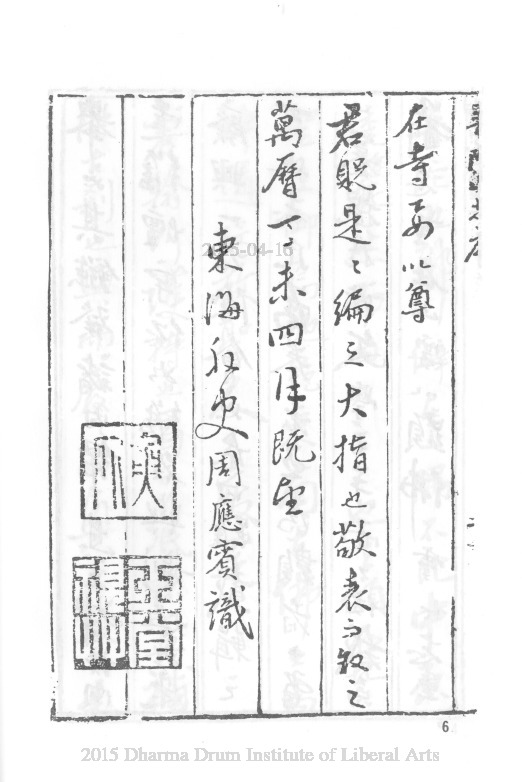 在寺要以尊
君貺是〻編之大指也敬表而敘之
萬曆丁未四月既望
東海外史周應賓識
2015-04-16
6
2015 Dharma Drum Institute of Liberal Arts